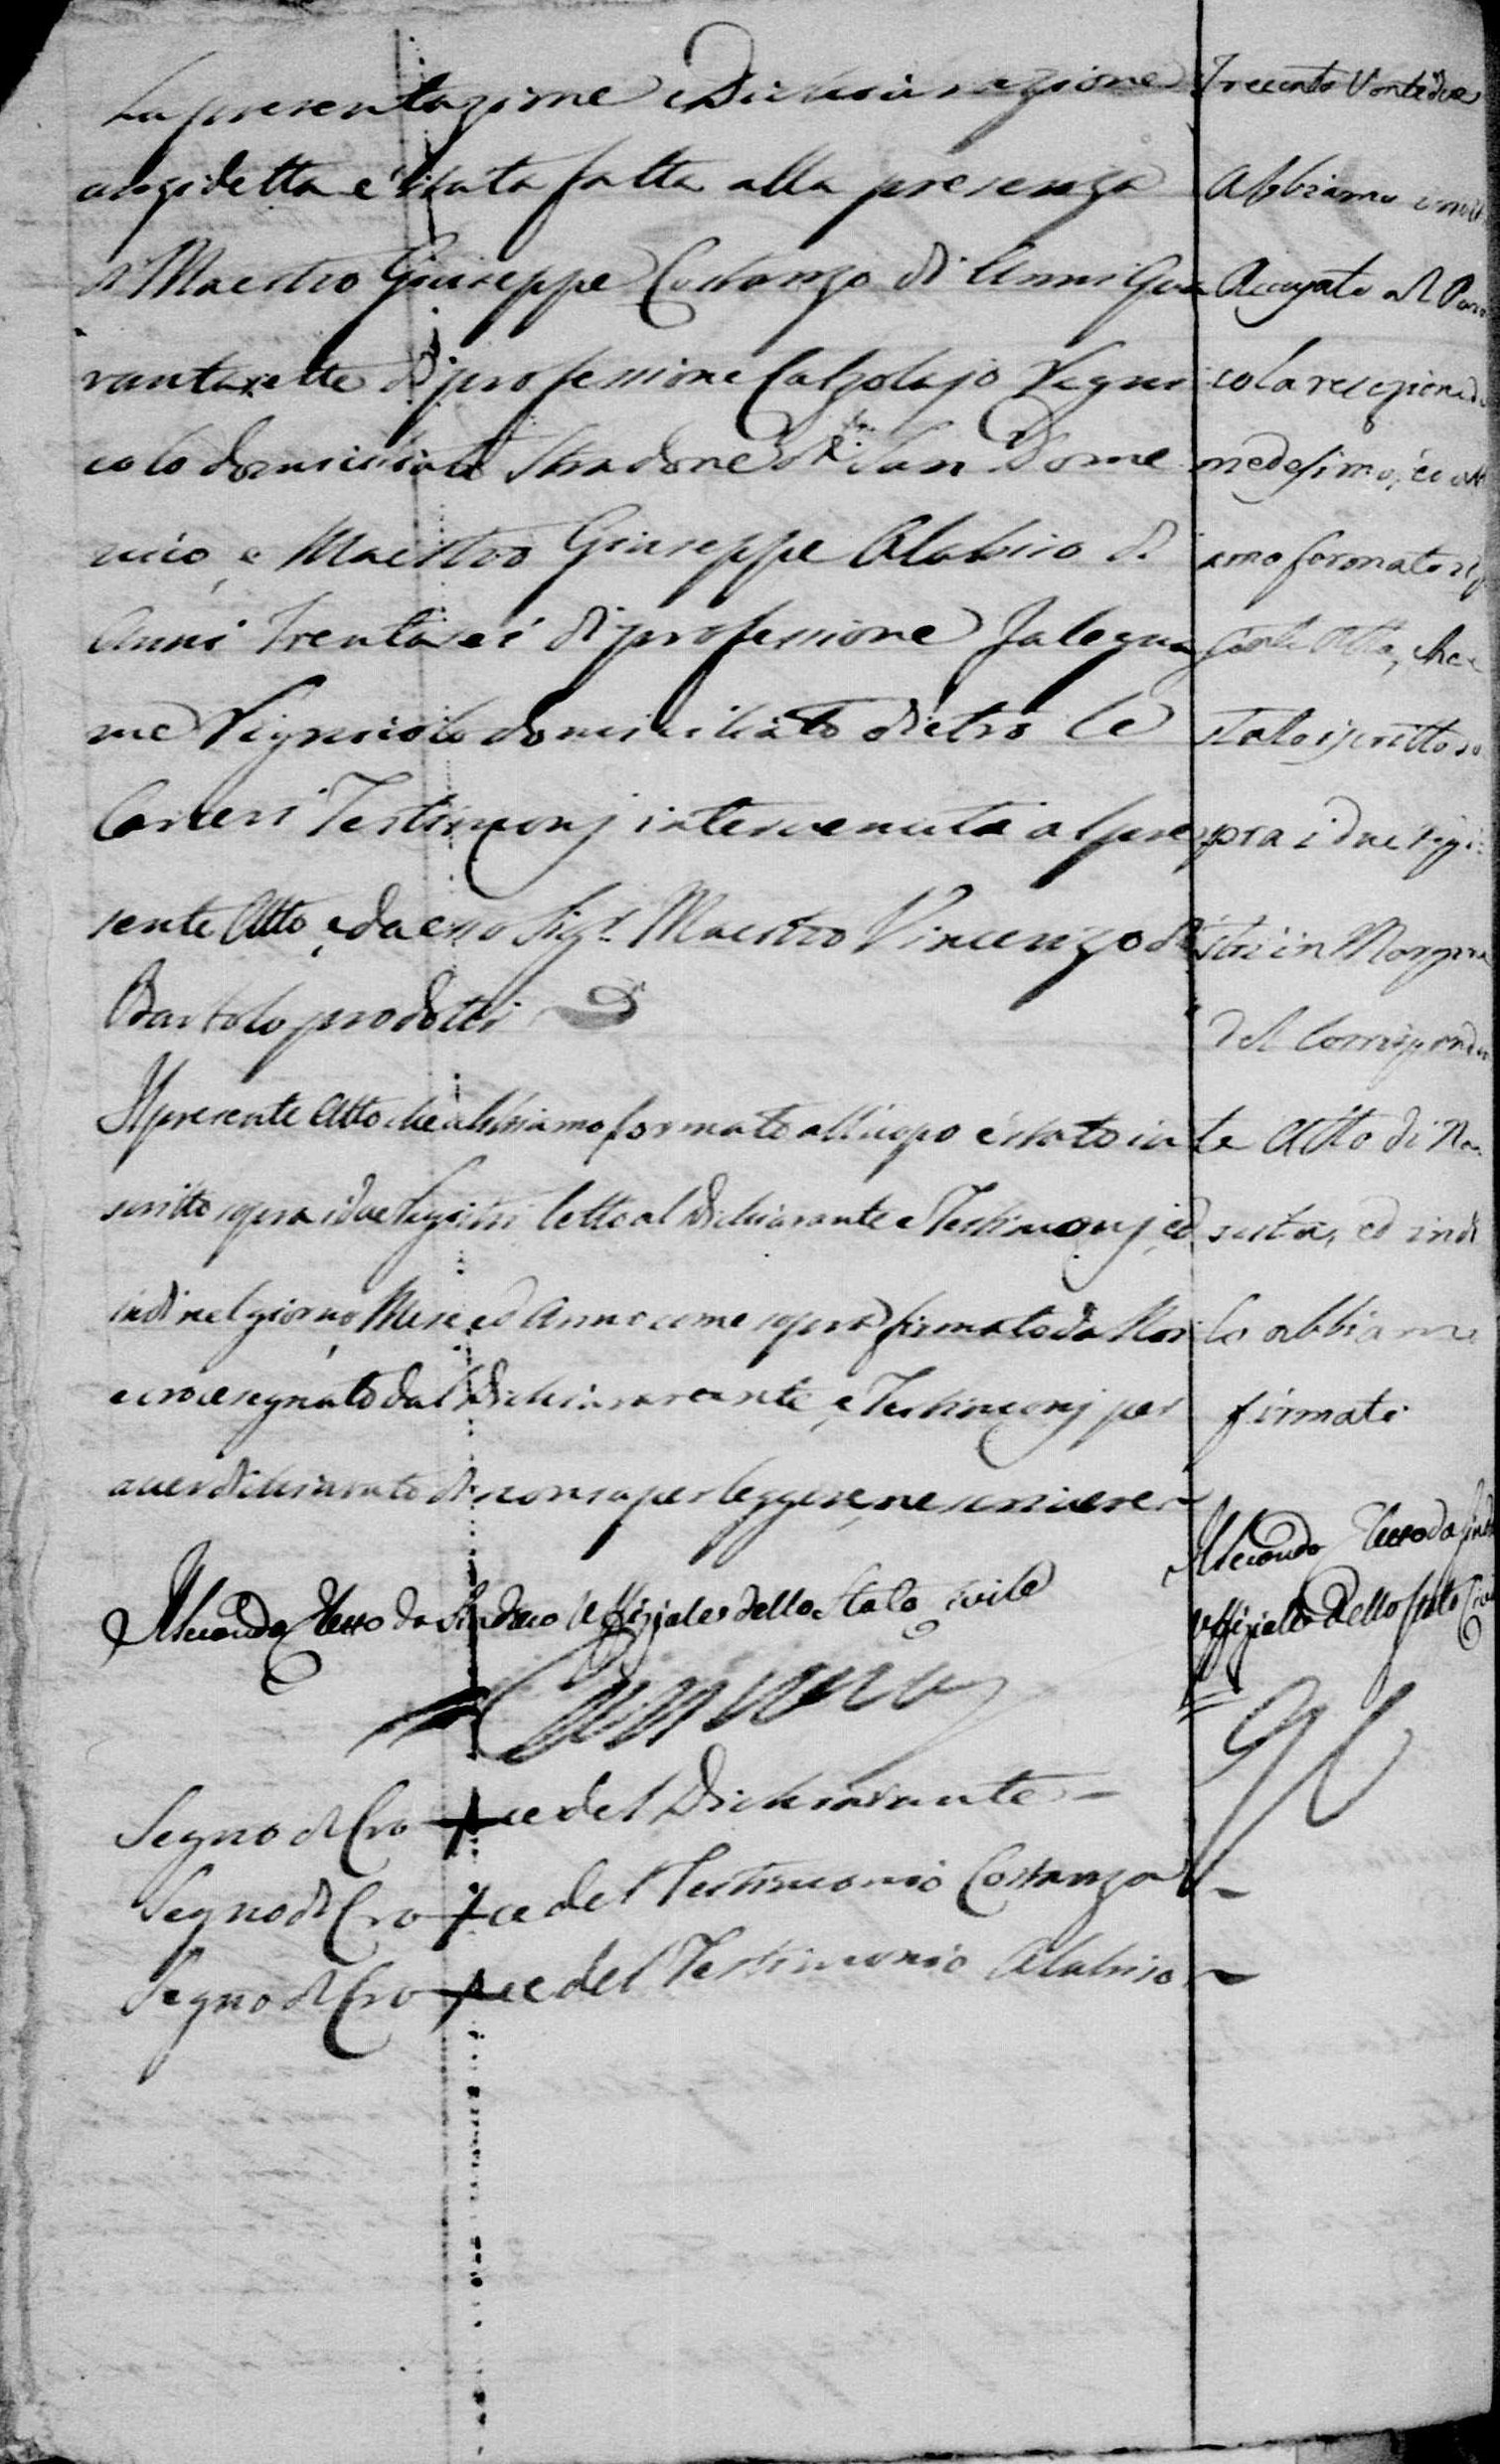 La presentazione e Dichiarazione
anzidetta è stata fatta alla presenza
di Maestro Giuseppe Costanzo di Anni Qua
rantasette di professione Calzolajo Regni
colo domiciliato Stradone di San Dome
nico, e Maestro Giuseppe Alabiso di
Anni Trentasei di professione Falegna
me Regnicolo domiciliato dietro le
Carceri Testimonj intervenuti al pre
sente Atto, e da esso Sigr. Maestro Vincenzo di
Bartolo prodotti
Il presente Atto che abbiamo formato all'uopo è stato in
scritto sopra i due Registri letto al Dichiarante e Testimonj, ed
indi nel giorno, Mese ed Anno come sopra firmato da Noi
e crocesegnato dal Dichiararante, e Testimonj per
aver dichiarato di non saper leggere, ne scrivere
Il secondo Eletto da Sindaco Uffiziale dello Stato Civile
Segno di Cro ce del Dichiarante
Segno di Cro ce del Testimonio Costanzo
Segno di Cro ce del Testimonio Alabiso
Trecento Ventidue
Abbiamo
Accusato al Par
co la recezione d
medesimo, ed abb
iamo formato il
Atto, che è
stato iscritto so
pra i due Regi
stri in Margine
del Corrisponden
te Atto di Na
scita, ed indi
lo abbiamo
firmato
Il secondo Eletto da Sind
Uffiziale dello Stato Civi